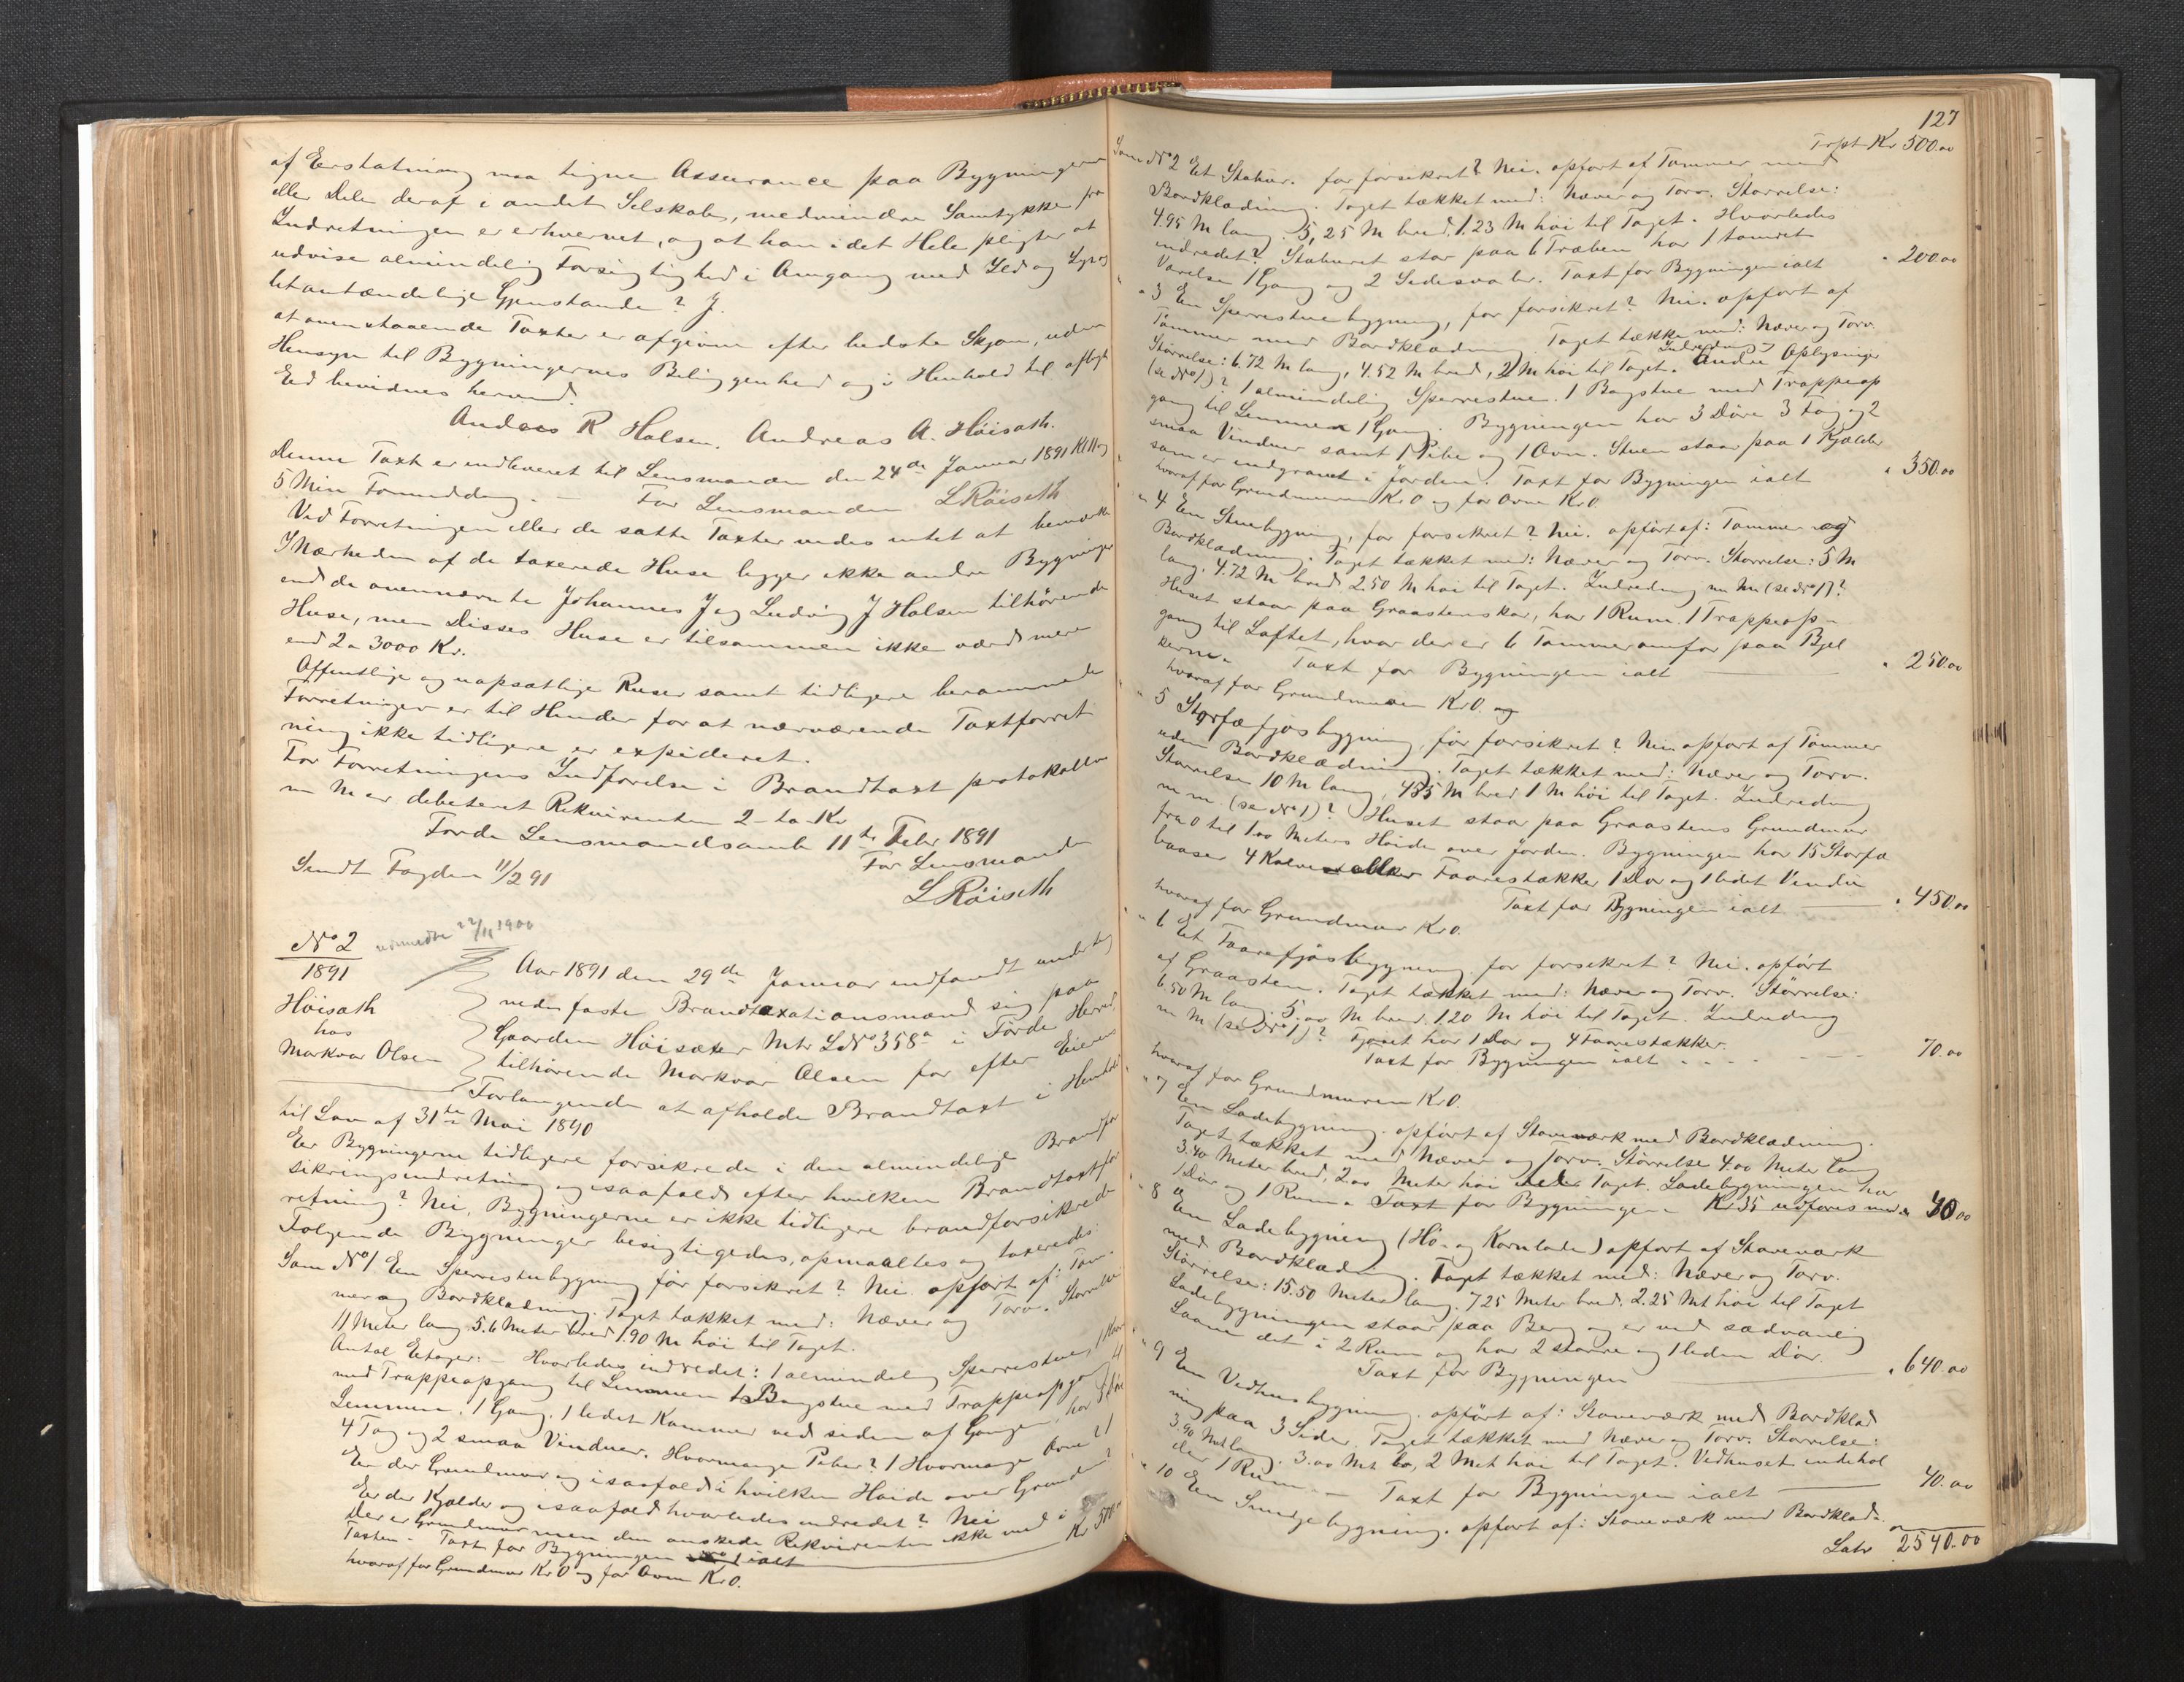 af Erstatning maa tegne Assurance paa Bygningerne
eller Dele deraf i andet Selskab, medmindre Samtykke fra
Indretningen er erhvervet, og at han i det Hele pligter at
udvise almindelig Forsigtighed i Omgang med Ild og Lys og
letantændelige Gjenstande? J.
at ovenstaaende Taxter er afgivne efter bedste Skjøn, uden
Hensyn til Bygningernes Beliggenhed og i Henhold til aflagt
Ed bevidnes herved.
Anders R Halsen. Andreas A. Høisæth.
Denne Taxt er indleveret til Lensmanden den 24de Januar 1891 Kl 11 og
5 Min Formiddag. - For Lensmanden L Røiseth
Ved Forretningen eller de satte Taxter vides intet at bemærke
I Nærheden af de taxerede Huse ligger ikke andre Bygninger
end de ovennævnte Johannes J og Ludvig J Halsen tilhørende
Huse, men Disses Huse er tilsammen ikke værd mere
end 2 a 3000 Kr.
Offentlige og uopsættlige Reiser samt tidligere berammede
Forretninger er til Hinder for at nærværende Taxtforret
ning ikke tidligere er expederet.
For Forretningens Indførelse i Brandtaxtprotokollen
m M er debiteret Rekvirenten 2 - to - Kr
Førde Lensmandsomb 11te Febr 1891
Sendt Fogden 11/2 91 For Lensmanden
L Røiseth
No 2 udmeldt 22/11 1900
1891
Høisæth
hos
Markvar Olsen
Aar 1891 den 29de Januar indfandt underteg
nede faste Brandtaxationsmænd sig paa
Gaarden Høisæter Mtr LNo 358a i Førde Herred
tilhørende Markvar Olsen for efter Eierens
Forlangende at afholde Brandtaxt i Henhold
til Lov af 31te Mai 1890
Er Bygningerne tidligere forsikrede i den almindelige Brandfor
sikringsindretning og isaafald efter hvilken Brandtaxtfor
retning? Nei, Bygningerne er ikke tidligere brandforsikrede
Følgende Bygninger besigtigedes, opmaaltes og taxeredes
Som No 1 En Sperrestubygning før forsikret? Nei. opført af: Tøm-
mer og Bordklædning. Taget tækket med: Næver og Torv. Størrelse
11 Meter lang 5.6 Meter bred 1.90 M høi til Taget.
Antal Etager: - Hvorledes indredet: 1 almindelig Sperrestue,
med Trappeopgang til Lemmen 1 Bagstue med Trappeopgang til
Lemmen. 1 Gang. 1 lidet Kammer ved siden af Gangen, har 5 Døre
4 Fag og 2 smaa Vinduer. Hvormange Piber? 1 Hvormange Ovne? 1
Er der Grundmur og isaafald i hvilken Høide over Grunden?
Er der Kjælder og isaafald hvorledes indredet? Nei
Der er Grundmur men den ønskede Rekvirenten ikke med i
Taxten - Taxt for Bygningen ialt Kr 500.00
hvoraf for Grundmur Kr 0 og for Ovne Kr 0.
127
Trspt Kr 500.00
Som No 2 Et Stabur. før forsikret? Nei. opført af Tømmer med
Bordklædning. Taget tækket med: Næver og Torv. Størrelse:
4.95 M lang. 5,25 M bred. 1.23 M høi til Taget. Hvorledes
indredet? Staburet star paa 6 Træben har 1 tømret
Værelse 1 Gang og 2 Sidesvaler. Taxt for Bygningen ialt " 200.00
" 3 En Sperrestuebygning, før forsikret? Nei. opført af
Tømmer med Bordklædning Taget tækket med: Næver og Torv.
Størrelse: 6.72 M lang, 4.52 M bred, 2 M høi til Taget. Indredning og Andre Oplysninger
(se No 1)? 1 almindelig Sperrestue. 1 Bagstue med Trappeop
gang til Lemmen 1 Gang. Bygningen har 3 Døre 3 Fag og 2
smaa Vinduer samt 1 Pibe og 1 Ovn. Stuen staar paa 1 Kjælder
som er indgravet i Jorden. Taxt for Bygningen ialt " 350.00
hvoraf for Grundmuren Kr 0 og for Ovne Kr 0.
" 4 En Stuebygning, før forsikret? Nei. opført af: Tømmer og
Bordklædning. Taget tækket med: Næver og Torv. Størrelse: 5 M
lang, 4.72 M bred 2.50 M høi til Taget. Indredning m M (se No 1)?
Huset staar paa Graastensker, har 1 Rum. 1 Trappeop-
gang til Loftet, hvor der er 6 Tømmeromfar paa Bjel
kerne. Taxt for Bygningen ialt " 250.00
hvoraf for Grundmuren Kr 0. og
" 5 Storfæfjøsbygning, før forsikret? Nei. opført af Tømmer
uden Bordklædning. Taget tækket med: Næver og Torv.
Størrelse 10 M lang, 485 M bred 1 M høi til Taget. Indredning
m m. (se No 1)? Huset staar paa Graastens Grundmur
fra 0 til 1.00 Meters Høide over Jorden. Bygningen har 15 Storfæ
baaser 4 Kalve Faarestækker 1 Dør og 1 lidet Vindu
Taxt for Bygningen ialt " 450.00
hvoraf for Grundmur Kr 0.
" 6 Et Faarefjøsbygning før forsikret? Nei. opført
af Graasten. Taget tækket med: Næver og Torv. Størrelse:
6.50 M lang. 5.00 M bred. 1.20 M høi til Taget. Indredning
m M (se No 1)? Fjøset har 1 Dør og 4 Faarestækker.
Taxt for Bygningen ialt 70.00
hvoraf for Grundmuren Kr 0.
" 7 En Ladebygning. opført af Stavværk med Bordklædning.
Taget tækket med Næver og Torv. Størrelse 4.00 Meter lang
3.40 Meter bred, 2.00 Meter høi til Taget. Ladebygningen har
1 Dør og 1 Rum. Taxt for Bygningen Kr 35 udføres med " 40.00
" 8 En Ladebygning (Hø- og Kornlade) opført af Stavværk
med Bordklædning. Taget tækket med: Næver og Torv.
Størrelse: 15.50 Meter lang. 7.25 Meter bred. 2.25 Mt høi til Taget
Ladebygningen staar paa Berg og er ved sædvanlig
Laave delt i 2 Rum og har 2 større og 1 liden Dør.
Taxt for Bygningen " 640.00
" 9 En Vedhusbygning. opført af: Stavværk med Bordklæd
ning paa 3 Sider. Taget tækket med Næver og Torv. Størrelse:
3.90 Mt lang. 3.00 Mt br, 2 Mt høi til Taget. Vedhuset indehol
der 1 Rum. - Taxt for Bygningen ialt 40.00
" 10 En Smedjebygning. opført af: Stavværk med Bordklædn.
Latr 2540.00